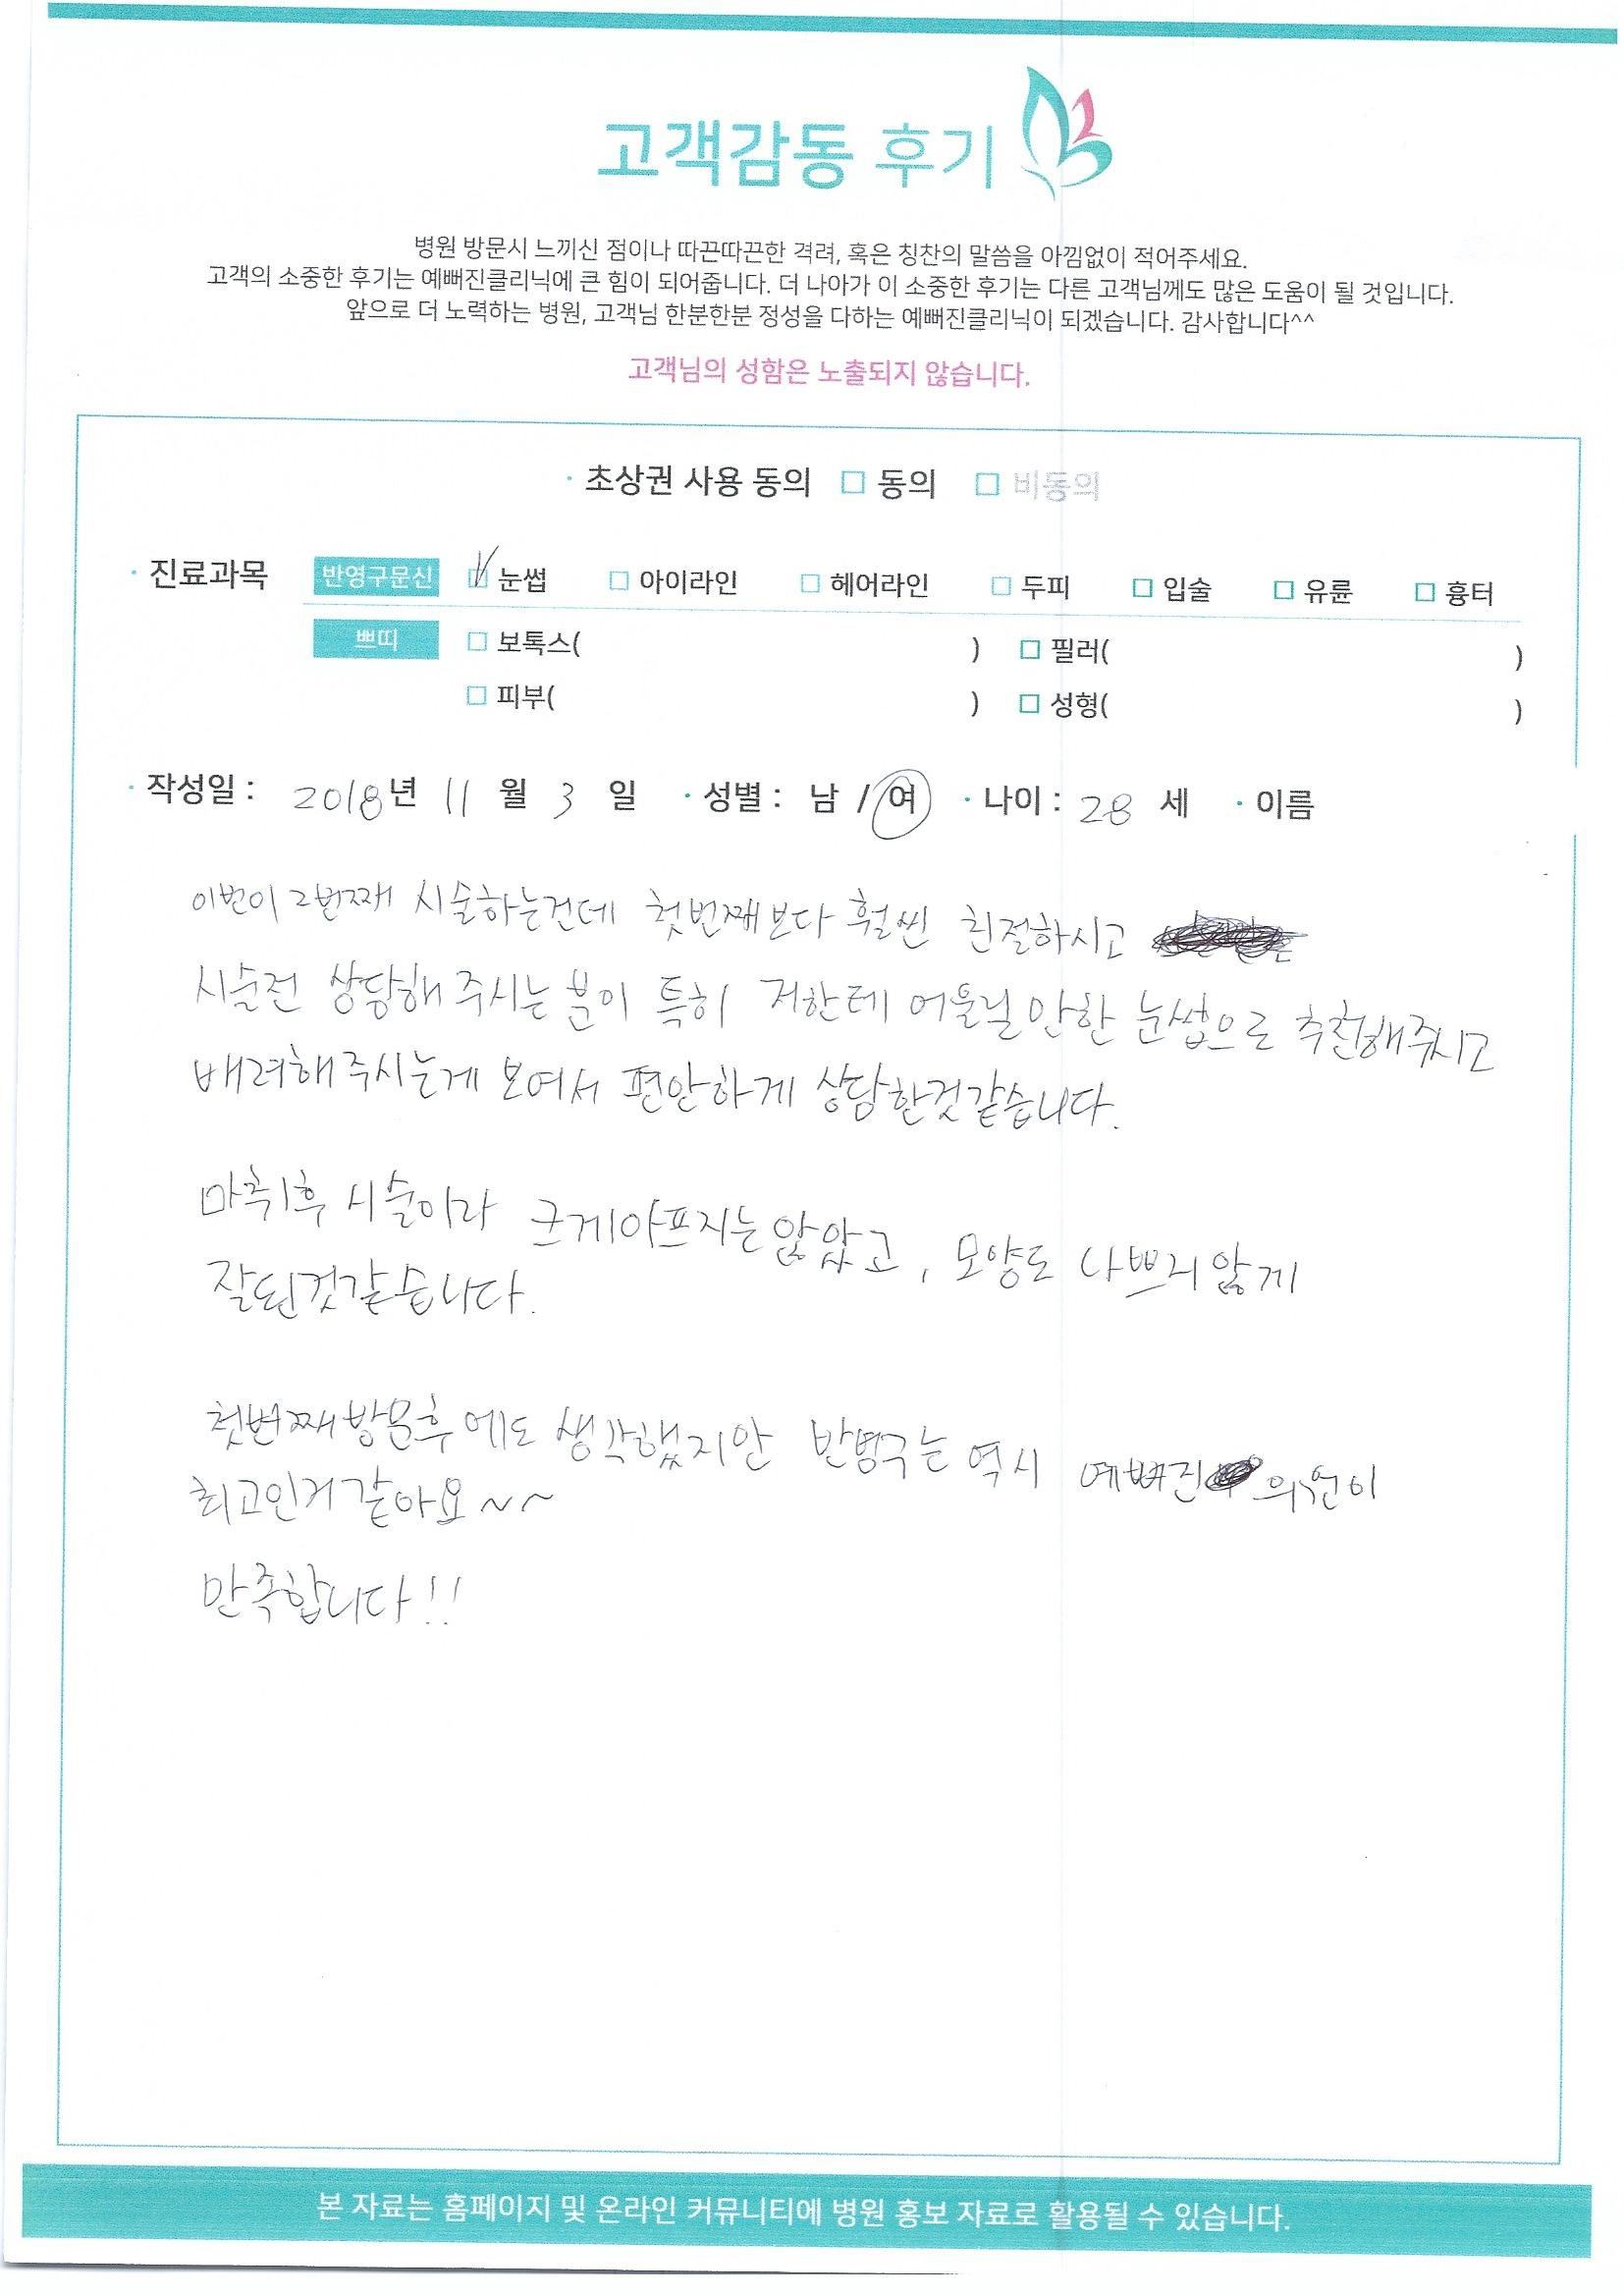 고객감동 후기
병원 방문시 느끼신 점이나 따끈따끈한 격려, 혹은 칭찬의 말씀을 아낌없이 적어주세요.
고객의 소중한 후기는 예뻐진클리닉에 큰 힘이 되어줍니다. 더 나아가 이 소중한 후기는 다른 고객님께도 많은 도움이 될 것입니다.
앞으로 더 노력하는 병원, 고객님 한분한분 정성을 다하는 예뻐진클리닉이 되겠습니다. 감사합니다^^
고객님의 성함은 노출되지 않습니다.
· 초상권 사용 동의 □ 동의 □ 비동의
· 진료과목 반영구문신 ☑ 눈썹 □ 아이라인 □ 헤어라인 □ 두피 □ 입술 □ 유륜 □ 흉터
쁘띠 □ 보톡스( ) □ 필러( )
□ 피부( ) □ 성형( )
· 작성일 : 2018년 11 월 3 일 · 성별 : 남 / 여 · 나이 : 28 세 · 이름
이번이 2번째 시술하는건데 첫번째보다 훨씬 친절하시고
시술전 상담해 주시는 분이 특히 저한테 어울릴 만한 눈썹으로 추천해주시고
배려해주시는게 보여서 편안하게 상담한것같습니다.
마취후 시술이라 크게아프지는 않았고, 모양도 나쁘지 않게
잘된것같습니다.
첫번째 방문후에도 생각했지만 반영구는 역시 예뻐진 의원이
최고인거 같아요~~
만족합니다!!
본 자료는 홈페이지 및 온라인 커뮤니티에 병원 홍보 자료로 활용될 수 있습니다.